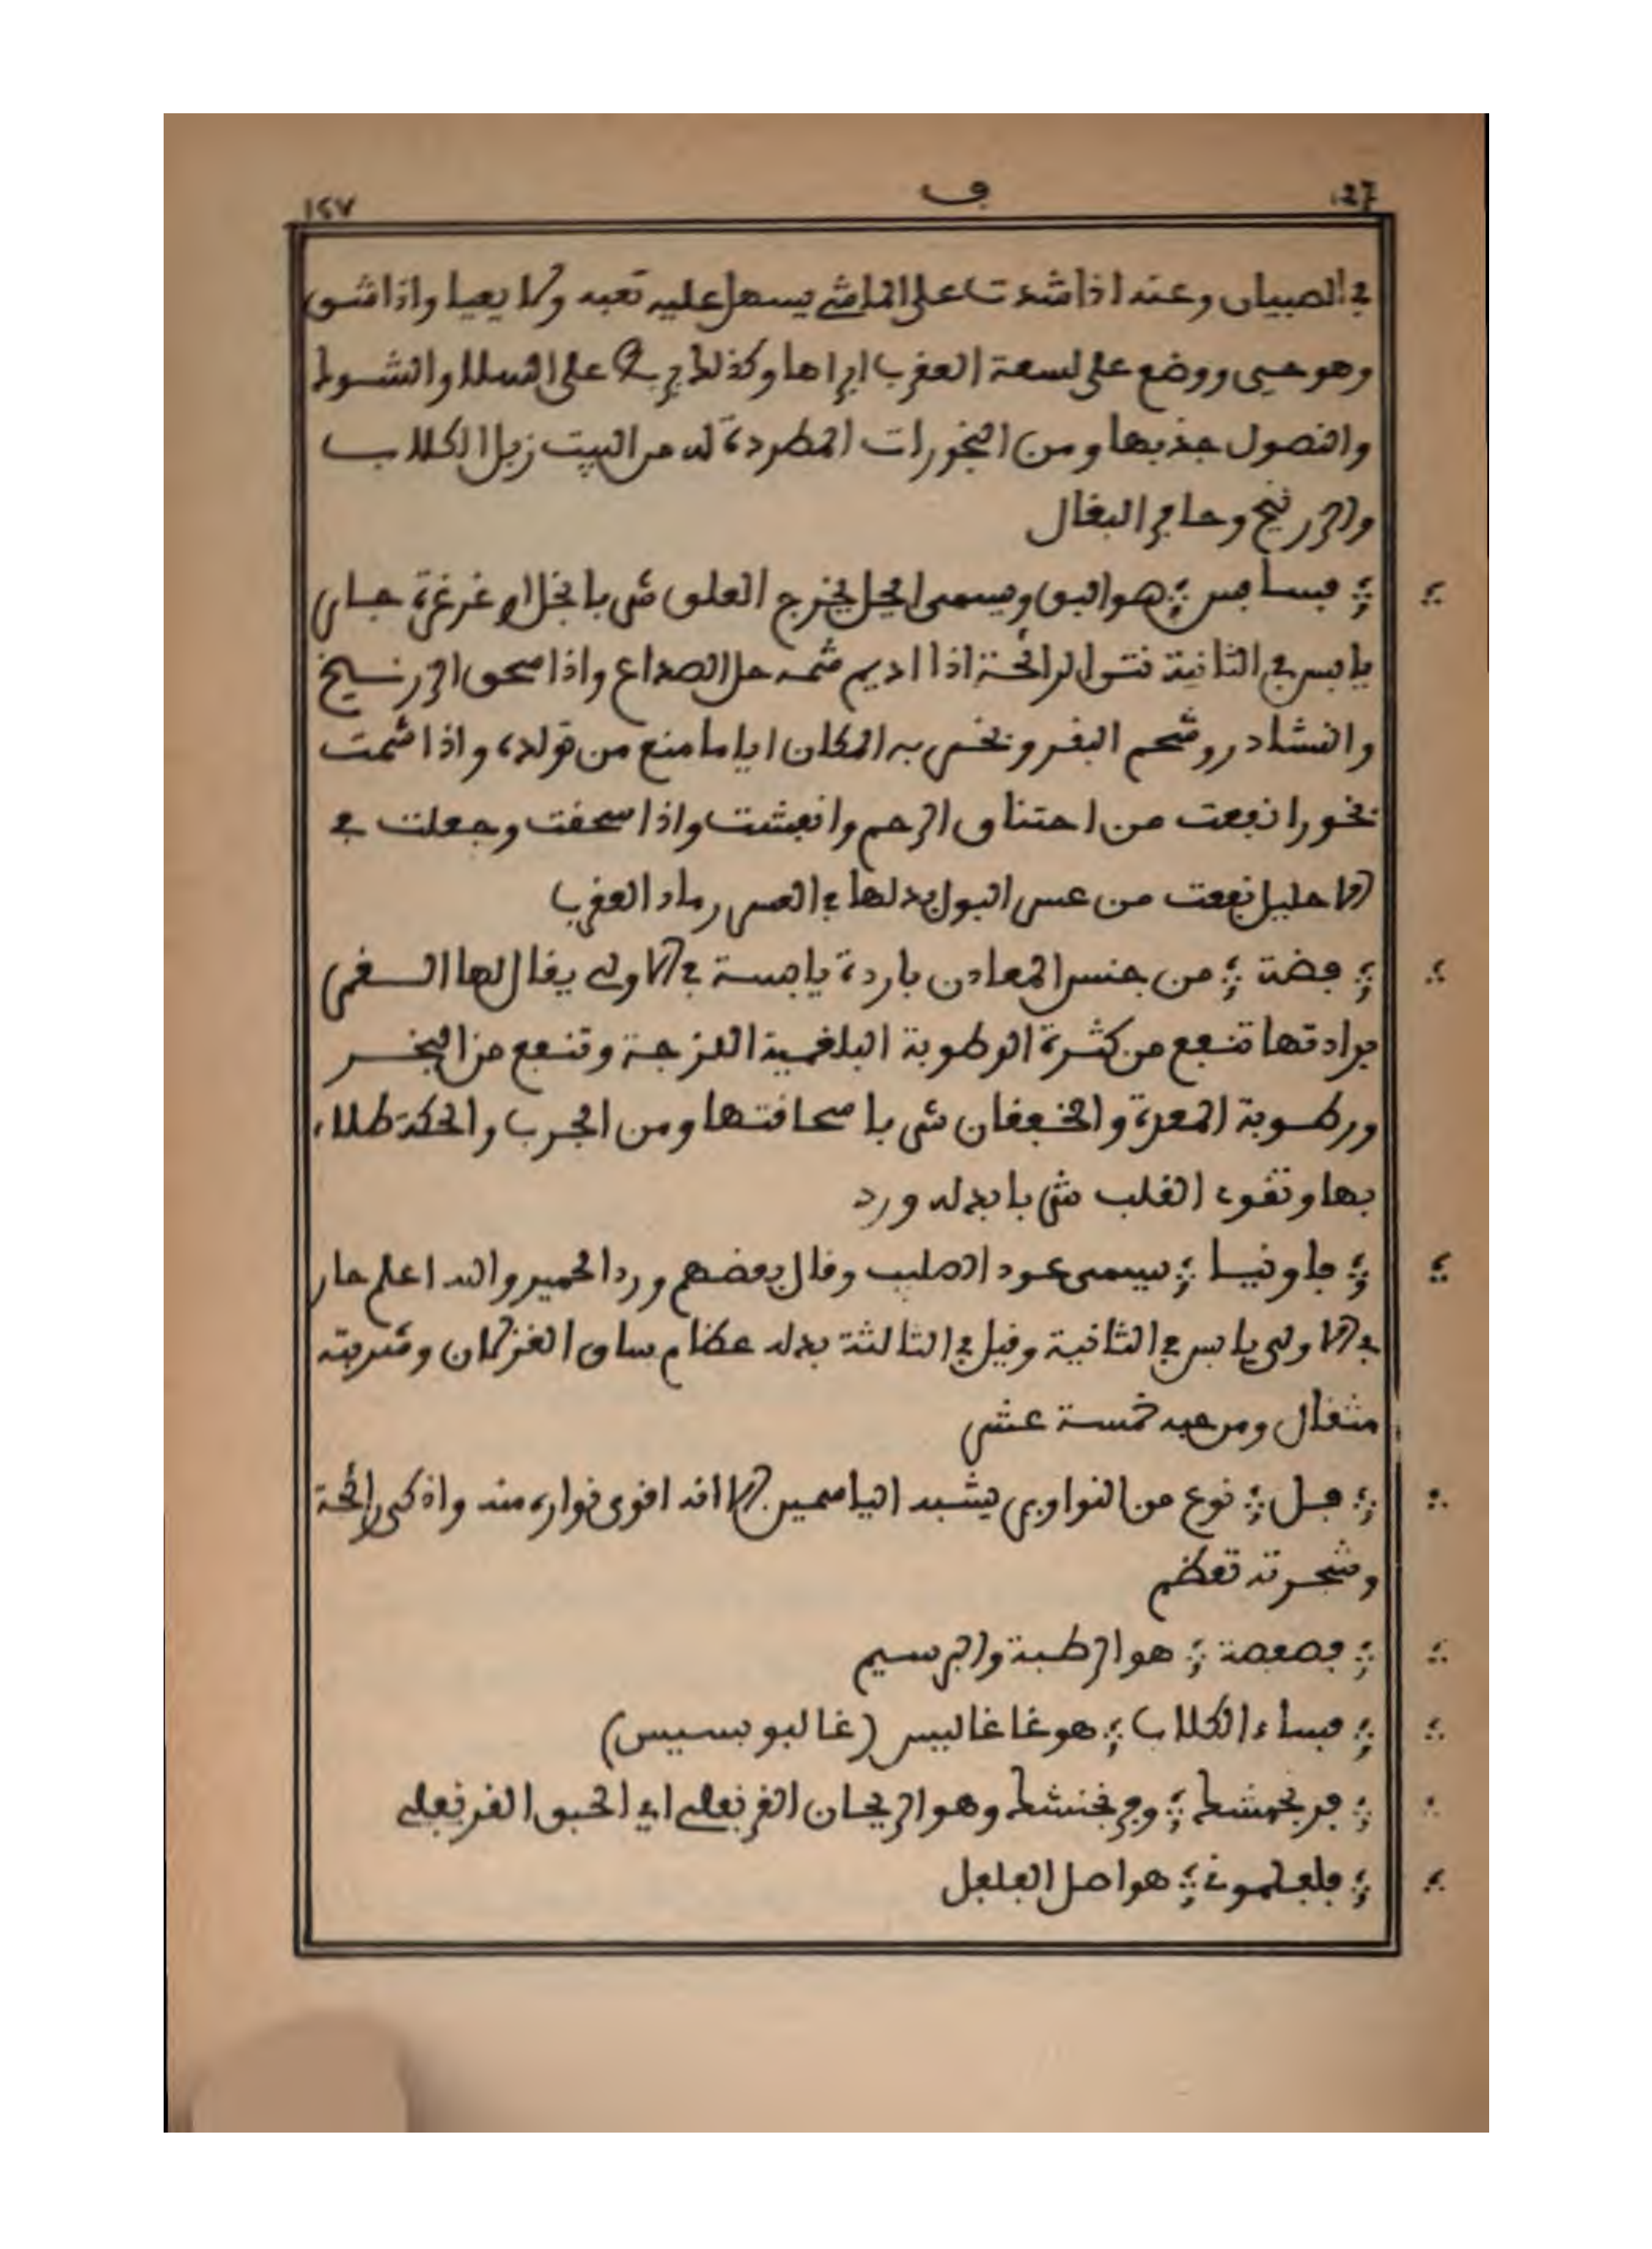 127 ف ١٢٧
في الصبيان وعنه اذا شدت على الماشي يسهل عليه تعبه ولا يعيا واذا شق
وهو حيي ووضع على لسعة العقرب ابراها وكذلك على السلا والشوك
والنصول جذبها ومن البخورات المطردة له من البيت زبل الكلاب
والزرنيخ وحافر البغال
فسافس هو البق ويسمى يخرج العلق شربا بالخل او غرغرة حار
يابس في الثانية نتن الرائحة اذا اديم شمه حل الصداع واذا سحق الزرنيخ
والنشادر وشحم البقر وبخر به المكان اياما منع من تولده واذا شمت
بخورا نفعت من اختناق الرحم وانعشت واذا سحقت وجعلت في
الاحليل نفعت من عسر البول بدلها في العسر رماد العقرب
فضة من جنس المعادن باردة يابسة في الاولى يقال لها
برادتها تنفع من كثرة الرطوبة البلغمية اللزجة وتنفع من البخر
ورطوبة المعدة والخفقان شربا سحاقتها ومن الجرب والحكة طلاء
بها وتقوي القلب شربا بدله ورد
فاونيا يسمى عود الصليب وقال بعضهم ورد الحمير والله اعلم حار
في الاولى يابس في الثانية وقيل في الثالثة بدله عظام ساق الغزلان وشربته
مثقال ومن حبه خمسة عشر
فل نوع من النواوير يشبه الياسمين الا انه اقوى نواره منه واذكى رائحة
وشجرته تعظم
فصفصة هو الرطبة والبرسيم
فساء الكلاب هو غاغاليس (غاليوبسيس)
فرنجمشك وفرنجنشك وهو الريحان القرنفلي اي الحبق القرنفلي
فلفلمونة هو اصل الفلفل